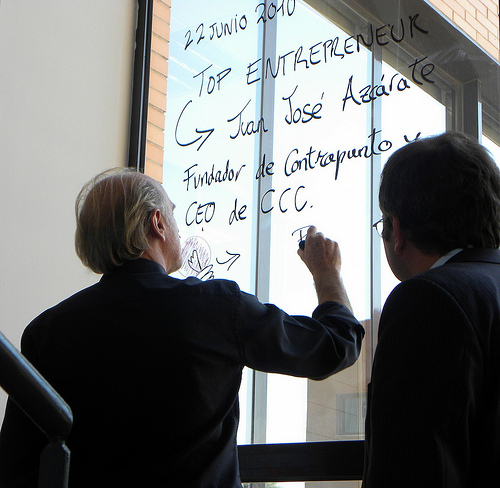 22 JUNIO 2010
TOP ENTREPRENEUR
Juan José Azcárate
Fundador de Contrapunto y
CEO de CCC.